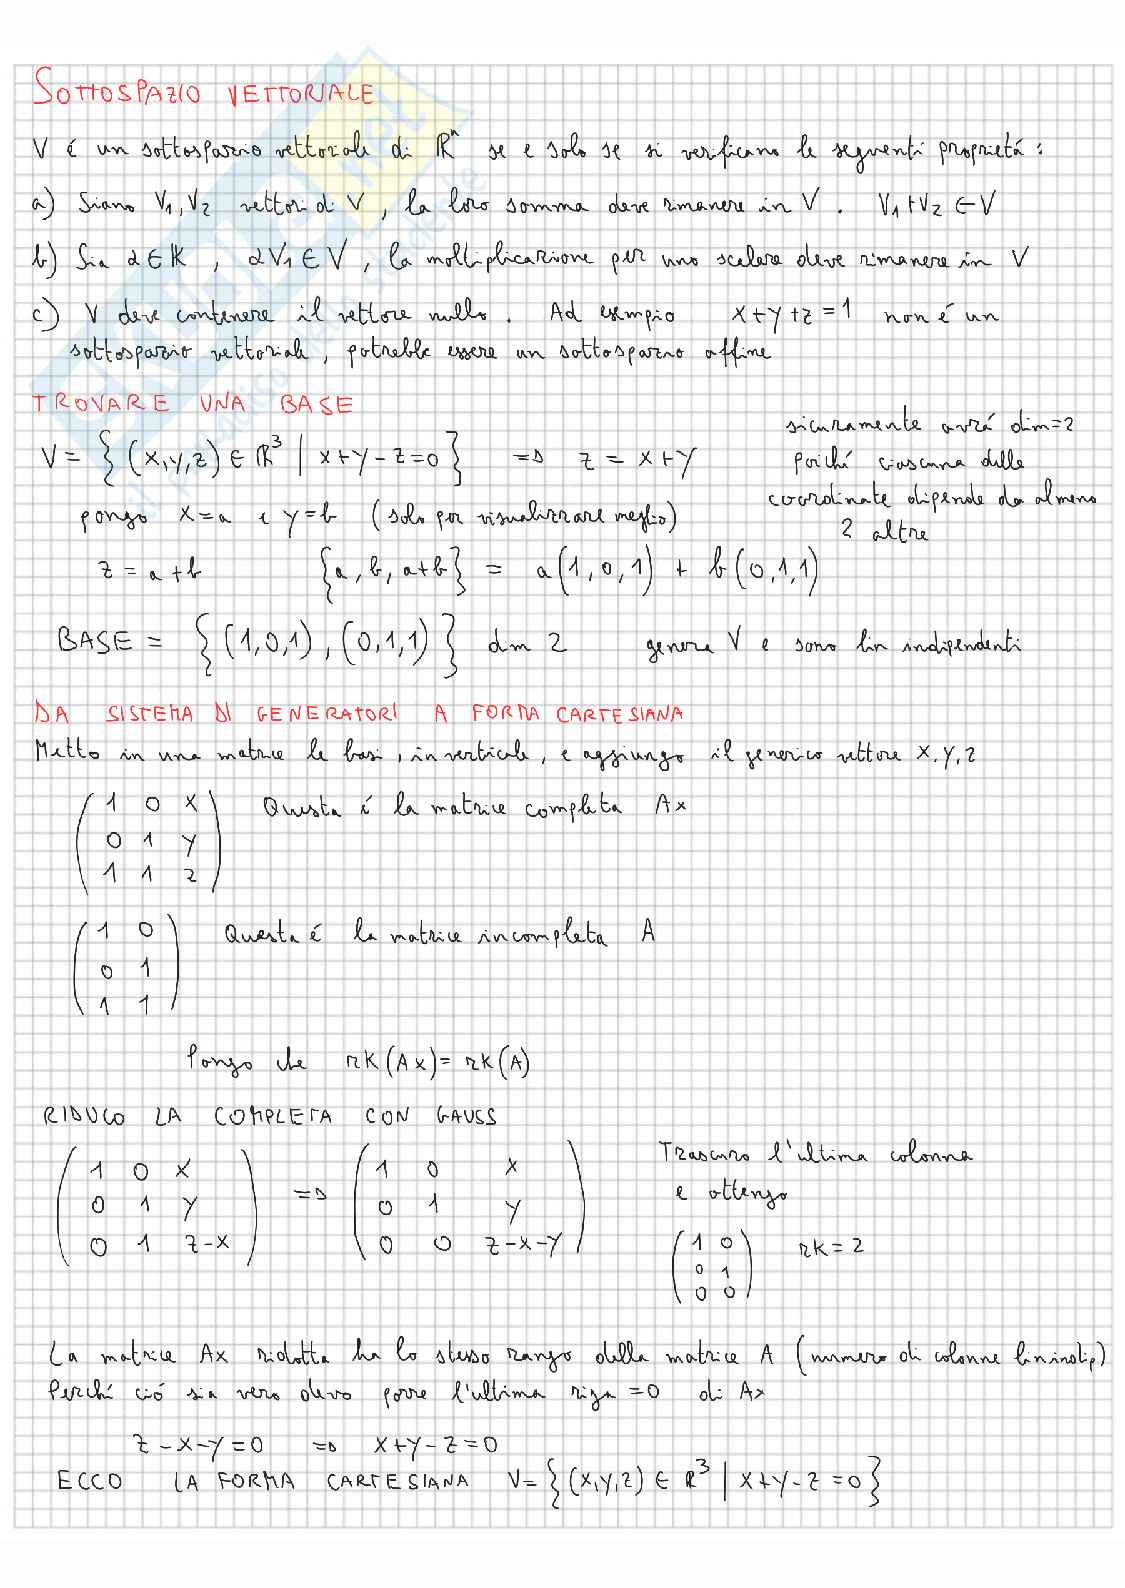 SOTTOSPAZIO VETTORIALE
V é un sottospazio vettoriale di ℝⁿ se e solo se si verificano le seguenti proprietá :
a) Siano V₁,V₂ vettori di V , la loro somma deve rimanere in V . V₁+V₂ ∈ V
b) Sia α ∈ K , αV₁ ∈ V , la moltiplicazione per uno scalare deve rimanere in V
c) V deve contenere il vettore nullo . Ad esempio x+y+z=1 non é un
sottospazio vettoriale, potrebbe essere un sottospazio affine
TROVARE UNA BASE
V = { (x,y,z) ∈ ℝ³ | x+y-z=0 } => z = x+y
sicuramente avrá dim=2
poiché ciascuna delle
coordinate dipende da almeno
2 altre
pongo x=a e y=b (solo per visualizzare meglio)
z = a+b {a, b, a+b} = a(1,0,1) + b(0,1,1)
BASE = { (1,0,1), (0,1,1) } dm 2 genera V e sono lin indipendenti
DA SISTEMA DI GENERATORI A FORMA CARTESIANA
Metto in una matrice le basi, in verticale, e aggiungo il generico vettore x,y,z
1 0 x Questa é la matrice completa Ax
0 1 y
1 1 z
1 0 Questa é la matrice incompleta A
0 1
1 1
Pongo che rk(Ax) = rk(A)
RIDUCO LA COMPLETA CON GAUSS
1 0 x => 1 0 x
0 1 y 0 1 y
0 1 z-x 0 0 z-x-y
Trascuro l'ultima colonna
e ottengo
1 0 rk=2
0 1
0 0
La matrice Ax ridotta ha lo stesso rango della matrice A (numero di colonne lin indip)
Perché ció sia vero devo porre l'ultima riga =0 di Ax
z-x-y=0 => x+y-z=0
ECCO LA FORMA CARTESIANA V = { (x,y,z) ∈ ℝ³ | x+y-z=0 }